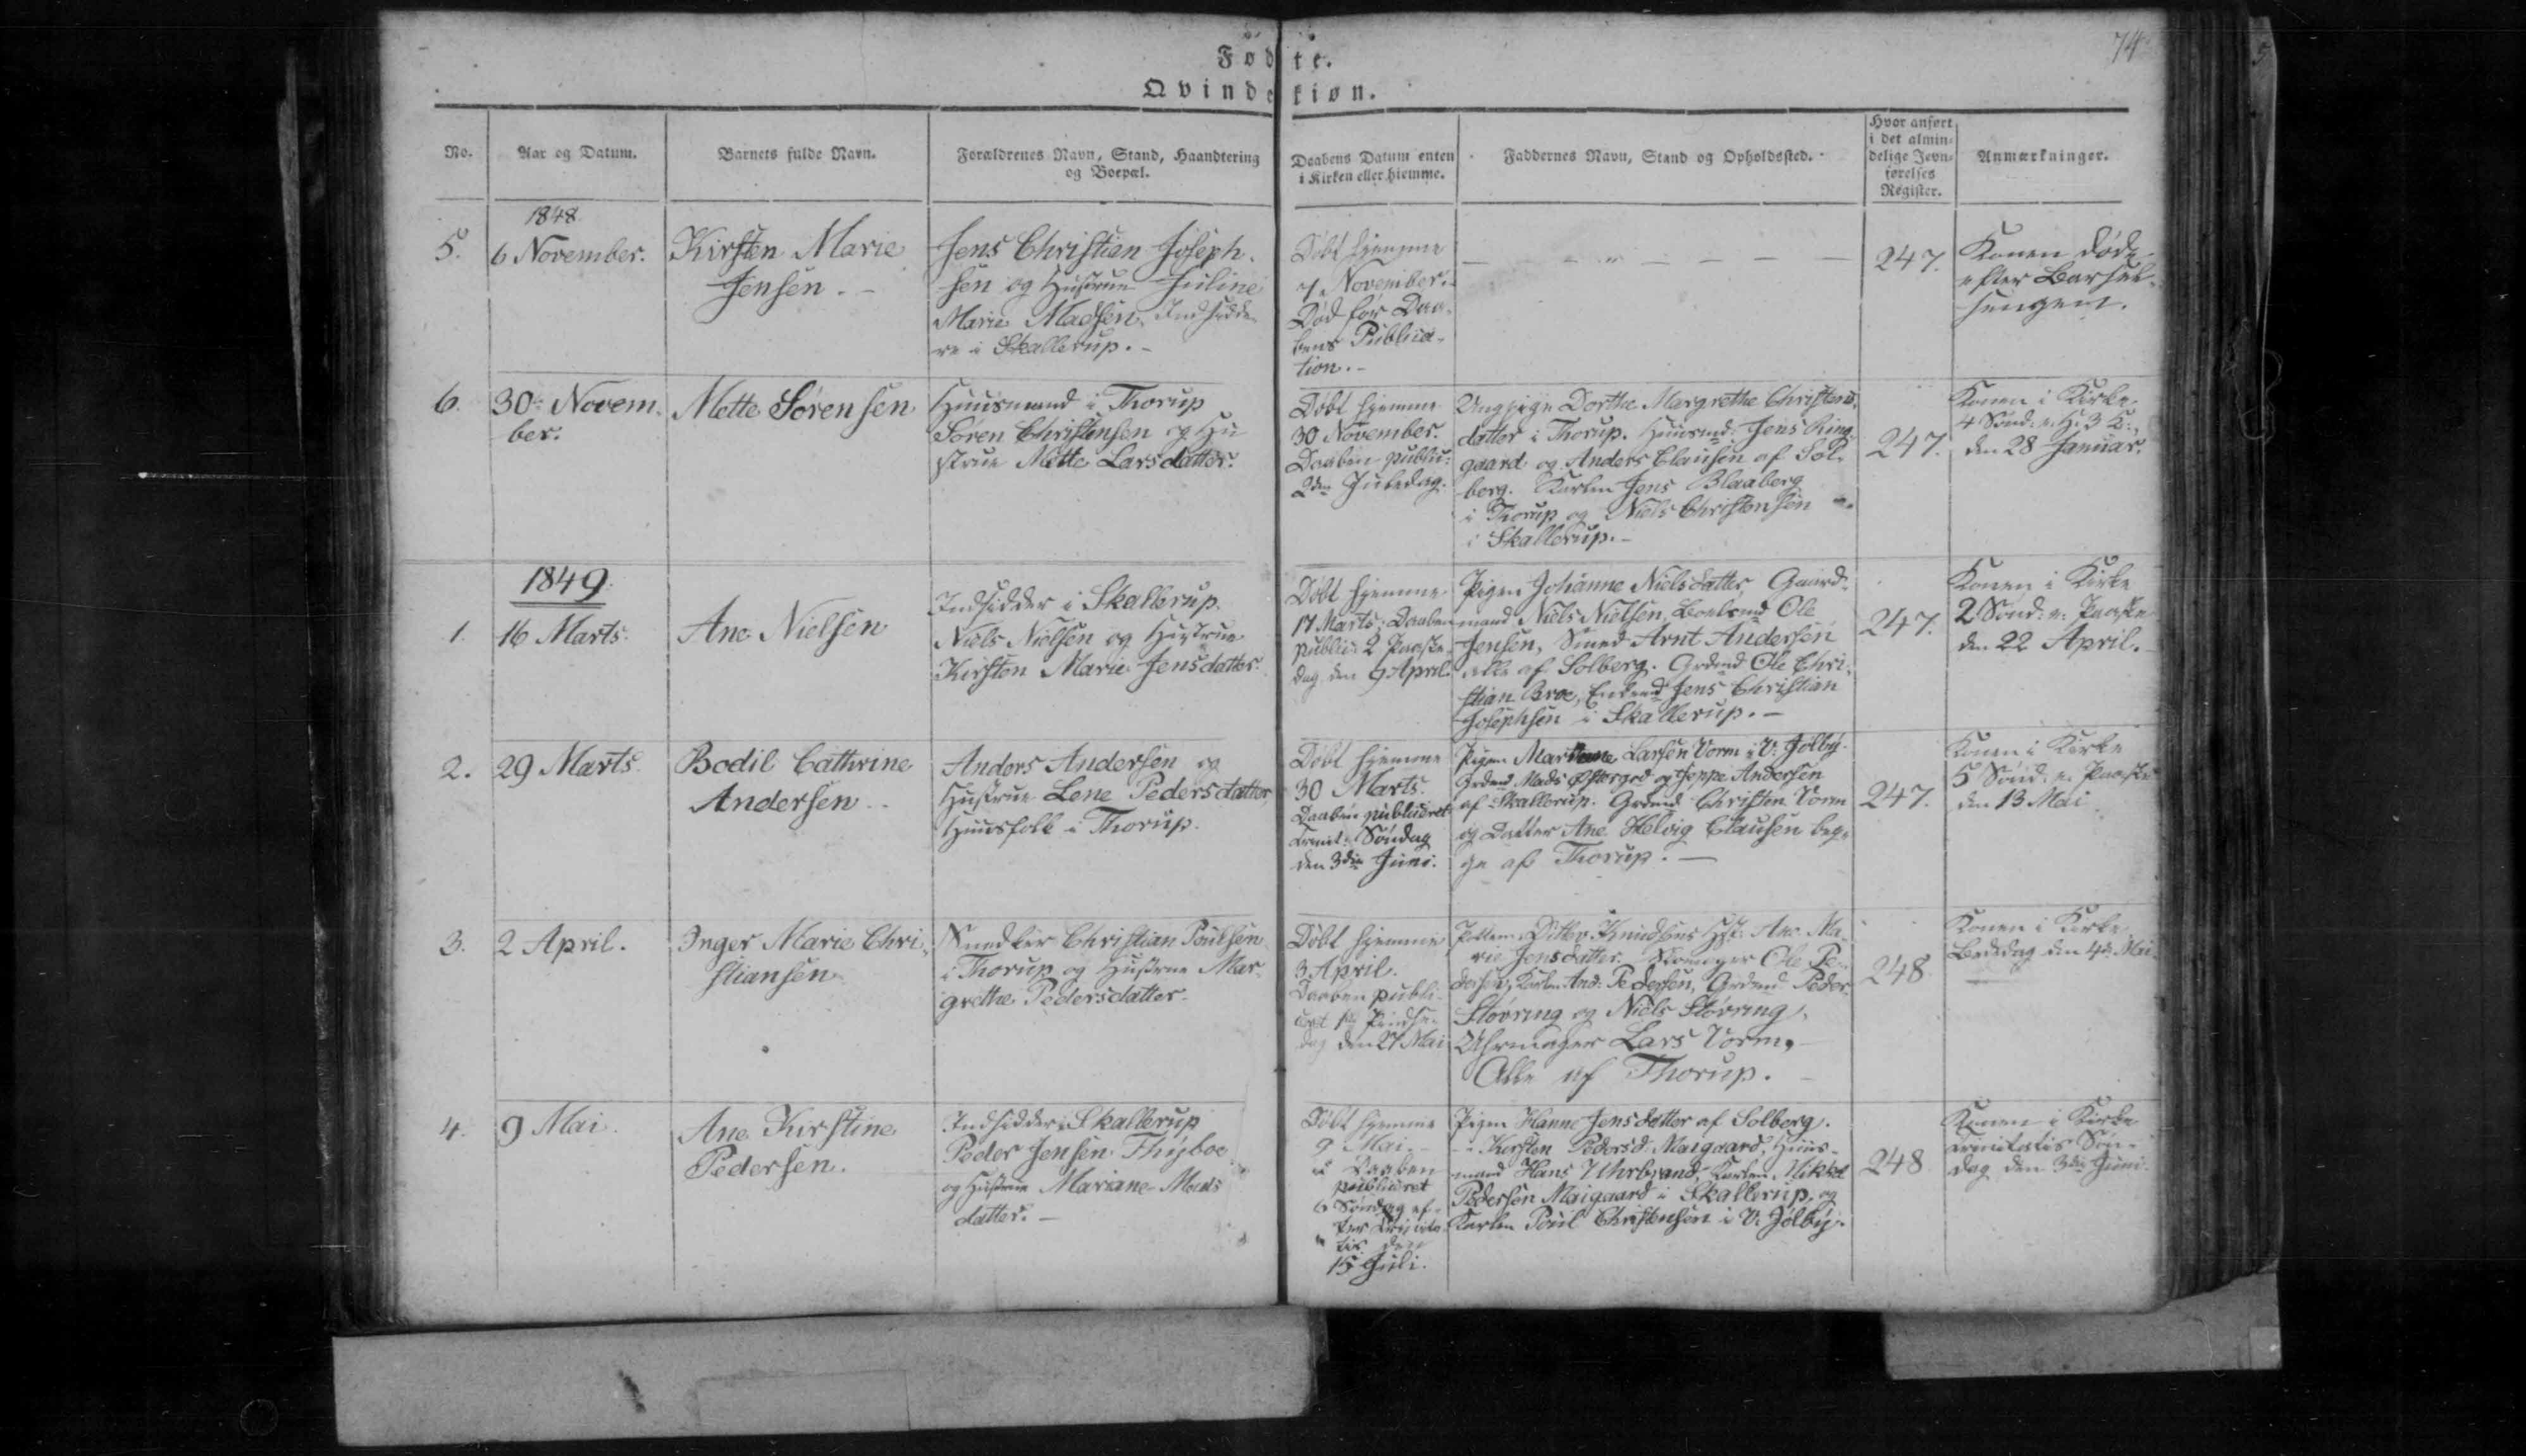 74
Fødte.
Qvindekiøn.
No.
Aar og Datum.
Barnets fulde Navn.
Forældrenes Navn, Stand, Haandtering
og Boepæl.
Daabens Datum enten
i Kirken eller hiemme.
Faddernes Navn, Stand og Opholdssted.
Hvor anført
i det almin-
delige Jevn-
førelses
Register.
Anmærkninger.
1848
5.
6 November.
Kirsten Marie
Jensen.
Jens Christian Joseph-
sen og Hustrue Juline
Marie Madsen, Indsidde-
re i Skallerup.
Døbt hjemme
7 November.
Død før Daa-
bens Publica-
tion.
247.
Konen døde
efter Barsel-
sengen.
6.
30 Novem-
ber.
Mette Sørensen
Huusmand i Thorup
Søren Christensen og Hu
strue Mette Larsdatter.
Døbt hjemme
30 November.
Daaben public:
2den Juledag.
Ungpige Dorthe Margrethe Christens-
datter i Thorup. Huusmd: Jens Ring-
gaard og Anders Clausen af Sol-
berg. Karlen Jens Blaaberg
i Thorup og Niels Christensen
i Skallerup.
247.
Konen i Kirke
4 Sønd: e: H: 3 K:
den 28 Januar.
1849
1.
16 Marts.
Ane Nielsen
Indsidder i Skallerup
Niels Nielsen og Hustrue
Kirsten Marie Jensdatter.
Døbt hjemme
17 Marts. Daaben
public: 2 Paaske-
dag den 9 April.
Pigen Johanne Nielsdatter, Gaard-
mand Niels Nielsen, Boelsmd Ole
Jensen, Smed Arnt Andersen
alle af Solberg. Grdmd Ole Chri-
stian Broe, Enkemd Jens Christian
Josephsen i Skallerup.
247.
Konen i Kirke
2 Sønd: e: Paaske
den 22 April.
2.
29 Marts.
Bodil Cathrine
Andersen.
Anders Andersen og
Hustrue Lene Pedersdatter,
Huusfolk i Thorup.
Døbt hjemme
30 Marts.
Daaben publiceret
Trinit: Søndag
den 3die Juni.
Pigen Larsen Vorm i V: Jølby.
Grdmd Mads Østergrd og Jeppe Andersen
af Skallerup. Grdmd Christen Vorm
og Datter Ane Helvig Clausen beg-
ge af Thorup.
247.
Konen i Kirke
5 Sønd: e: Paaske
den 13 Mai
3.
2 April.
Inger Marie Chri-
stiansen
Snedker Christian Poulsen
i Thorup og Hustrue Mar-
grethe Pedersdatter.
Døbt hjemme
3 April.
Daaben publi-
cret Pindse-
dag den 27 Mai
Ditlev Knudsens Hst: Ane Ma-
rie Jensdatter. Skomager Ole Pe-
dersen, Karlen And: Pedersen, Grdmd Peder
Støvring og Niels Støvring,
Uhrmager Lars Vorm,
Alle af Thorup.
248
Konen i Kirke
Bededag den 4de Mai
4.
9 Mai.
Ane Kirstine
Pedersen.
Indsidder i Skallerup
Peder Jensen Thyboe
og Hustrue Mariane Mads
datter.
Døbt hjemme
9 Mai.
Daaben
publiceret
6 Søndag ef-
ter Trinita-
tis den
15 Juli.
Pigen Hanne Jensdatter af Solberg.
Kirsten Pedersd: Maigaard, Huus-
mand Hans Uhrbrand, Karlen Mikkel
Pedersen Maigaard i Skallerup, og
Karlen Poul Christensen i V: Jølby.
248
Konen i Kirke
Trinitatis Søn-
dag den 3die Juni.